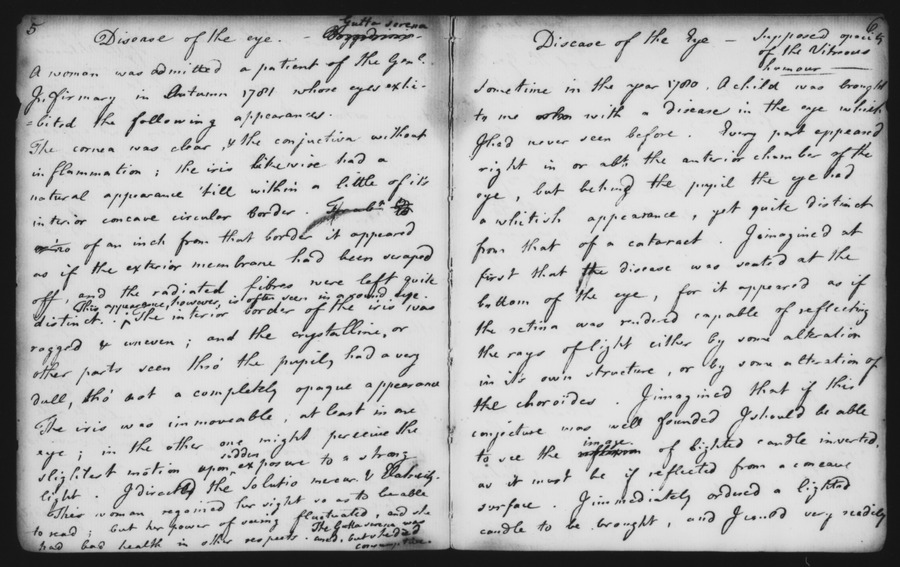 5
Disease of the eye. - Gutta serena
A woman was admitted a patient of the Genl.
Infirmary in Autumn 1781 whose eyes exhi-
-bited the following appearances.
The cornea was clear, & the conjuctiva without
inflammation; the iris likewise had a
natural appearance 'till within a little of it's
interior concave circular border.
of an inch from that border it appeared
as if the exterior membrane had been scraped
off, and the radiated fibres were left quite
This appearance, however, is often seen in a sound eye.
distinct. ^ The interior border of the iris was
ragged & uneven; and the crystalline, or
other parts seen thro' the pupil, had a very
dull, tho' not a completely opaque appearance
The iris was immoveable, at least in one
eye; in the other one might perceive the
slightest motion upon sudden exposure to a strong
light. I directed the Solutio mercur. & Electricity.
This woman regained her sight so as to be able
to read; but her power of seeing fluctuated, and she
had bad health in other respects. The Gutta serena was
cured, but she died
consumptive.
6
Disease of the Eye - Supposed opacity
of the Vitreous
humour
Sometime in the year 1780. A child was brought
to me with a disease in the eye which
I had never seen before. Every part appeared
right in or abt. the anterior chamber of the
eye, but behind the pupil the eye had
a whitish appearance, yet quite distinct
from that of a cataract. I imagined at
first that the disease was seated at the
bottom of the eye, for it appeared as if
the retina was rendered capable of reflecting
the rays of light either by some alteration
in it's own structure, or by some alteration of
the choroides. I imagined that if this
conjecture was well founded I should be able
to see the image of lighted candle inverted,
as it must be if reflected from a concave
surface. I immediately ordered a lighted
candle to be brought, and I could very readily